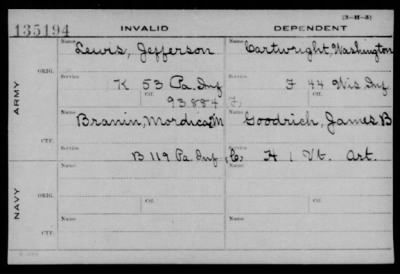 [3-H-3]
135194 INVALID DEPENDENT
Name Name
Lewis, Jefferson Cartwright, Washington
ORIG. Service Service
K 53 Pa. Inf F 44 Wis Inf.
Ctf. Ctf.
ARMY 93884
Name Name
Branin, Mordica M Goodrich, James B
CTF. Service
B 119 Pa. Inf H 1 Vt. Art.
Name Name
ORIG. Service Service
Ctf. Ctf.
NAVY
Name Name
CTF.